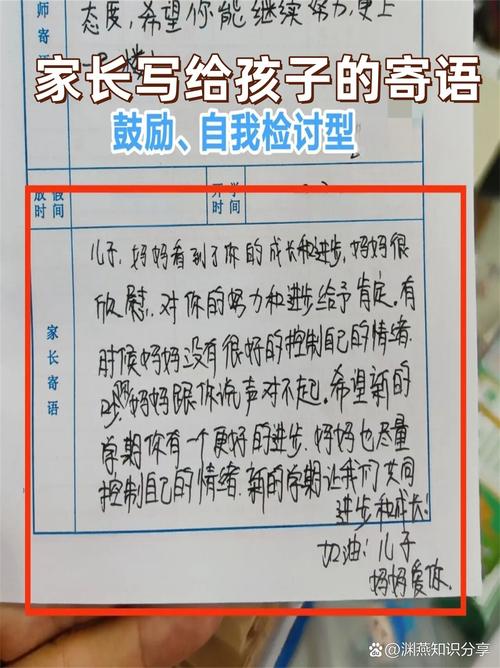 师寄语
态度,希望你能继续努力,更上
一
家长写给孩子的寄语
鼓励、自我检讨型
放假时间
开学时间
家长寄语
儿子,妈妈看到了你的成长和进步,妈妈很
欣慰,对你的努力和进步给予肯定。有
时候妈妈没有很好的控制自己的情绪.
妈妈跟你说声对不起。希望新的
学期你有一个更好的进步.妈妈也尽量
控制自己的情绪.新的学期让我们共同
进步和成长!
加油!儿子
妈妈爱你.
百家号/渊燕知识分享